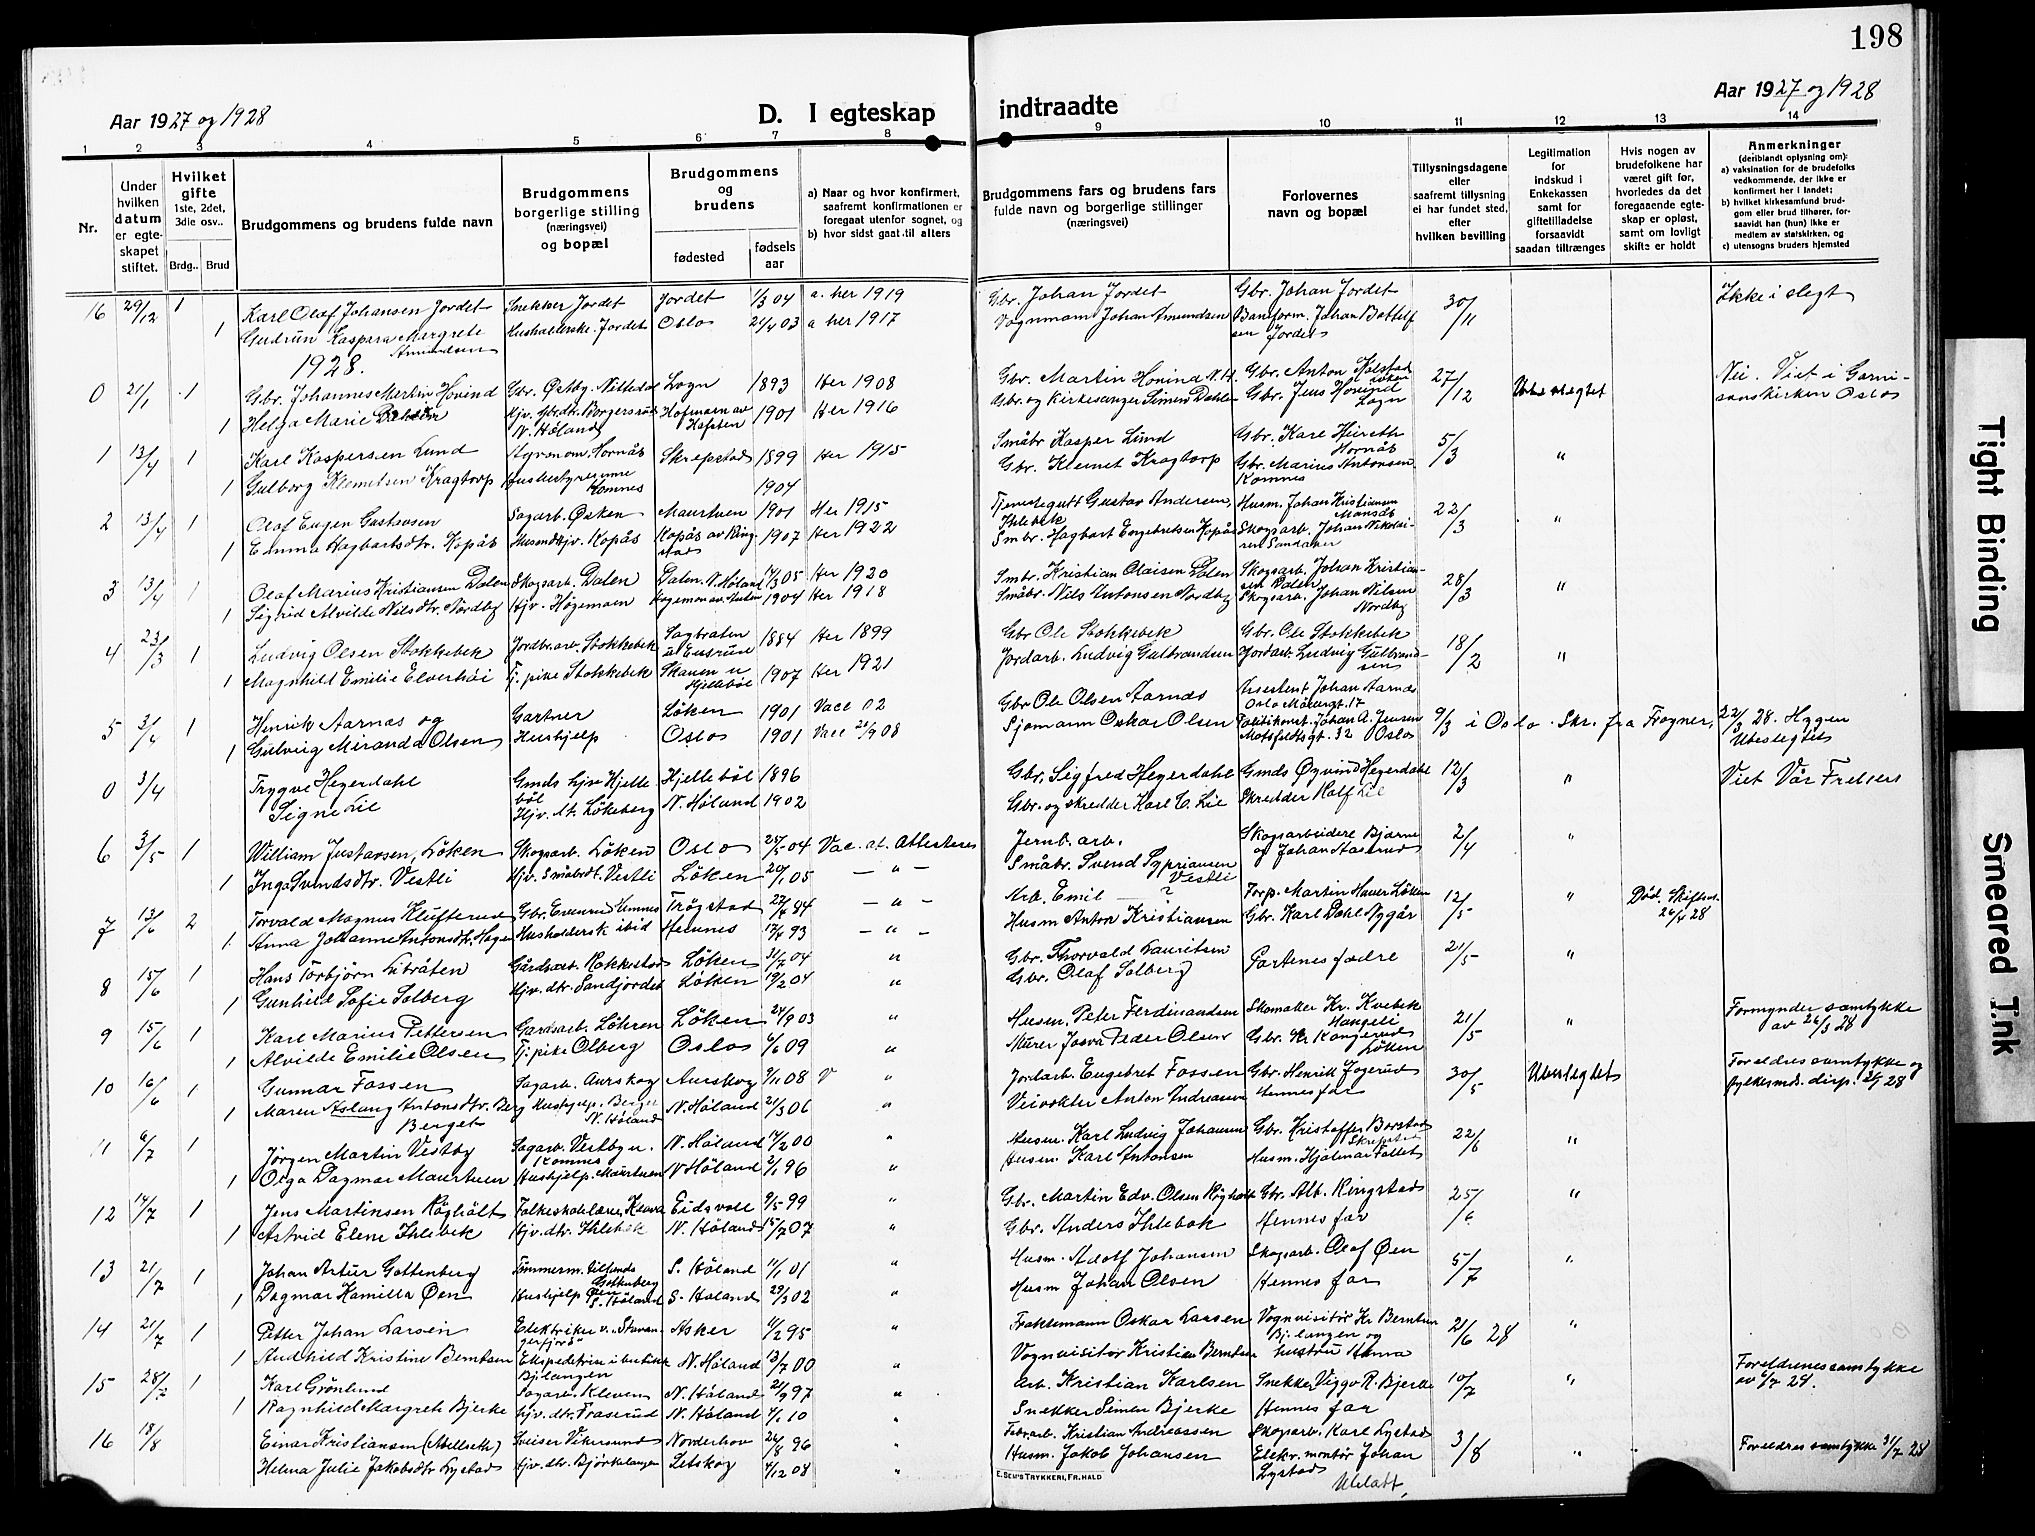 198
Aar 1927 og 1928
D. I egteskap indtraadte
Aar 1927 og 1928
1 2 3 4 5 6 7 8 9 10 11 12 13 14
Nr.
Under hvilken datum er egteskapet stiftet.
Hvilket gifte 1ste, 2det, 3die osv..
Brdg.. Brud
Brudgommens og brudens fulde navn
Brudgommens borgerlige stilling (næringsvei) og bopæl
Brudgommens og brudens
fødested
fødsels aar
a) Naar og hvor konfirmert, saafremt konfirmationen er foregaat utenfor sognet, og
b) hvor sidst gaat til alters
Brudgommens fars og brudens fars fulde navn og borgerlige stillinger (næringsvei)
Forlovernes navn og bopæl
Tillysningsdagene eller saafremt tillysning ei har fundet sted, efter hvilken bevilling
Legitimation for indskud i Enkekassen samt for giftetilladelse forsaavidt saadan tiltrænges
Hvis nogen av brudefolkene har været gift før, hvorledes da det foregaaende egteskap er opløst, samt om lovligt skifte er holdt
Anmerkninger (deriblandt oplysning om):
a) vaksination for de brudefolks vedkommende, der ikke er konfirmert her i landet;
b) hvilket kirkesamfund brudgom eller brud tilhører, forsaavidt han (hun) ikke er medlem av statskirken, og
c) utensogns bruders hjemsted
16 29/12 1 Karl Olaf Johansen Jordet Snekker Jordet Jordet 1/3 04 a. her 1919 Gbr. Johan Jordet Gbr. Johan Jordet 30/11 Ikke i slegt
1 Gudrun Kaspara Margrete Amundsen Husholderske Jordet Oslo 21/1 03 a her 1917 Vognmann Johan Amundsen Baneform. Johan Bottelfsen Jordet
1928.
0 21/1 1 Gbr. Johannes Martin Hovind Gbr. Østby. Nittedal Løgn 1893 Her 1908 Gbr. Martin Honind N.H. Gbr. Anton Kolstad 27/12 Viet i Garnisonskirken Oslo
1 Helga Marie Dahler N. Høland 1901 Her 1916 Gbr. og Kirkesanger Simen Dahler Gbr. Jens Hovind
1 13/4 1 Karl Kaspersen Lund Hornås Skrepstad 1899 Her 1915 Småbr Kasper Lund Gbr. Kare 5/3 "
1 Gulborg Klemetsen Kragtorp Komnes 1904 Gbr. Klemet Kragtorp Gbr. Marius Antonsen Komnes
2 13/4 1 Olaf Eugen Gustavsen Sagarb. Øsken Maurtuen 1901 Her 1915 Tjenstegutt Gustav Andersen, Ihlebek Husm. Johan Kristiansen 22/3 "
1 Emma Hagbartsdtr. Kopås Kopås Kopås av Ringstad 1907 Her 1922 Smbr. Hagbart Engebretsen Kopås Skogsarb. Johan Nikolaisen Sandaker
3 13/4 1 Olaf Marius Kristiansen Dalen Skogsarb. Dalen Dalen. N. Høland 14/3 05 Her 1920 Smbr. Kristian Olaisen Dalen Skogsarb. Johan Kristiansen Dalen 28/3 "
1 Sigrid Alvilde Nilsdtr. Nordby Hjv. Høgemoen 1904 Her 1918 Småbr. Nils Antonsen Nordby Skogsarb. Johan Nilsen Nordby
4 23/3 1 Ludvig Olsen Stokkebek Jordbr.arb. Stokkebek Sagbraten 1884 Her 1899 Gbr Ole Stokkebek Gbr. Ole Stokkebek 18/2 "
1 Magnhild Emilie Elverhøi Tj. pike Stokkebek Skauen u Hjellebøl 1907 Her 1921 Jordarb. Ludvig Gulbrandsen Jordarb. Ludvig Gulbrandsen
5 3/4 1 Henrik Aarnas og Gartner Løken 1901 Vacc 02 Gbr Ole Olsen Aarnas Assistent Johan Aarnas Oslo 9/3 i Oslo. Skr. fra Frogner, 22/3 28. Hygen
1 Gulveig Miranda Olsen Hushjelp Oslo 1901 Vacc 21/9 08 Sjømann Oskar Olsen Politikonst. Johan A. Jensen 32 Oslo Ubeslegtet
0 3/4 Trygve Hegerdahl Hjellebøl 1896 Gbr. Sigfred Hegerdahl Gmds Øyvind Hegerdahl 12/3 " Viet Vår Frelsers
Signe Lie Hjv. At. Løkeberg N. Høland 1902 Gbr. og skredder Karl C. Lie Skredder Rolf Lie
6 3/5 1 William Justansen, Løken Skogsarb. Løken Oslo 25/5 04 Vac. at. Attesteres Jernb. arb. Skogsarbeidere Bjarne og Johan Aaserud 2/4 "
1 Inga Svendsdtr. Vestli Hjv. Småbrdt. Vestli Løken 20/1 05 — " — Småbr. Svend Sypriansen Vestli
7 13/6 2 Torvald Magnus Klufterud Gbr. Evenrud Hemnes Trøgstad 27/4 84 — " — Arb. Emil — ? Forp. Martin Haver Løken 12/5 " Død. Skifteat. 26/4 28
1 Anna Johanne Antonsdtr. Hagen Husholdersk ibid Hemnes 17/4 93 — " — Husm Anton Kristiansen Gbr. Karl Dahl Nygår
8 15/6 1 Hans Torbjørn Libråten Gårdsarb. Rakkestad Løken 31/7 04 " Gbr. Thorvald Lauritsen Partenes fædre 21/5 "
1 Gunhild Sofie Solberg Hjv. dtr. Sandjordet Løken 19/2 04 " Gbr. Olaf Solberg
9 15/6 1 Karl Marius Pettersen Gardsarb. Løhren Løken 24/9 03 " Husm. Peter Ferdinandsen Skomaker Kr. Kvebek Hangeli 21/5 " Formynder samtykke av 26/3 28
1 Alvilde Emilie Olsen Tj. pike Olberg Oslo 6/6 09 " Murer Josva Peder Olsen Gbr. Kr Kongerud Løken
10 16/6 1 Gunnar Fossen Sagarb. Aurskog Aurskog 9/11 08 V " Jordarb. Engebret Fossen Gbr. Henrik Jogerud 30/5 Ubeslegtet Foreldres samtykke og fylkesmd. disp. 2/5 28
1 Maren Aslaug Antonsdtr. Berg Berget Hushjelp. Berger N. Høland N. Høland 21/3 06 " Veivokter Anton Andreassen Hennes far
11 6/7 1 Jørgen Martin Vestby Sagarb. Vestby u. Komnes N. Høland 14/2 00 " Husm. Karl Ludvig Johansen Gbr. Kristoffer Borstad Skrepstad 22/6 "
1 Olga Dagmar Maurtuen Hushjelp. Maurtuen N Høland 2/1 96 " Husm. Karl Antonsen Husm. Hjalmar Follet
12 14/7 1 Jens Martinsen Råghålt Folkeskolelærer, Eidsvoll 9/5 99 " Gbr. Martin Edv. Olsen Råghålt Gbr. Alb. Ringstad 25/6 "
1 Astrid Elene Ihlebek Hjv. dtr. Ihlebek N. Høland 15/2 07 " Gbr. Anders Ihlebek Hennes far
13 21/7 1 Johan Artur Gottenberg Tømmerm. Gottenberg S. Høland 11/1 01 " Husm. Adolf Johansen Skogsarb. Olaf Øen 5/7 "
1 Dagmar Kamilla Øen Hushjelp Øen S. Høland S. Høland 29/3 02 " Husm Johan Olsen Hennes far
14 21/7 1 Petter Johan Larsen Elektriker v. "Stavangerfjord" Asker 11/2 95 " Oskar Larsen Vognvisitør Kr Berntsen Bj.langen og hustru Anna 21/6 28 "
1 Audhild Kristine Berntsen Ekspeditrise i butikk Bj.langen N. Høland 13/7 00 " Vognvisitør Kristian Berntsen
15 28/7 1 Karl Grønlund Sagarb. Kleven N. Høland 21/9 97 " Arb. Kristian Karlsen Snekker Viggo R. Bjerke 10/7 " Foreldrenes samtykke av 6/7 28.
1 Ragnhild Margrete Bjerke hjv. dtr. Fraserud N. Høland 4/1 10 " Snekker Simen Bjerke Hennes far
16 18/8 Einar Kristiansen (Mellseth) Sveiser Vikersund Norderhov 26/8 96 " Fabrarb. Kristian Andreassen Skogsarb. Karl Lystad 3/8 " Foreldres samtykke 31/7 28
Helma Julie Jakobsdtr Lystad Hjv. dtr. Bjørkelangen Setskog 4/12 08 " Husm. Jakob Johansen Elekr. montør Johan Lystad
E. SEM'S TRYKKERI, FR.HALD
Tight Binding
Smeared Ink